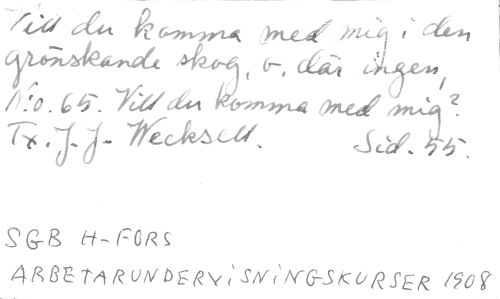 Vill du komma med mig i den
grönskande skog, o, där ingen,
N:o. 65. Vill du komma med mig?
Tx. J. J. Wecksell. Sid. 55.
SGB H-FORS
ARBETARUNDERVISNINGSKURSER 1908